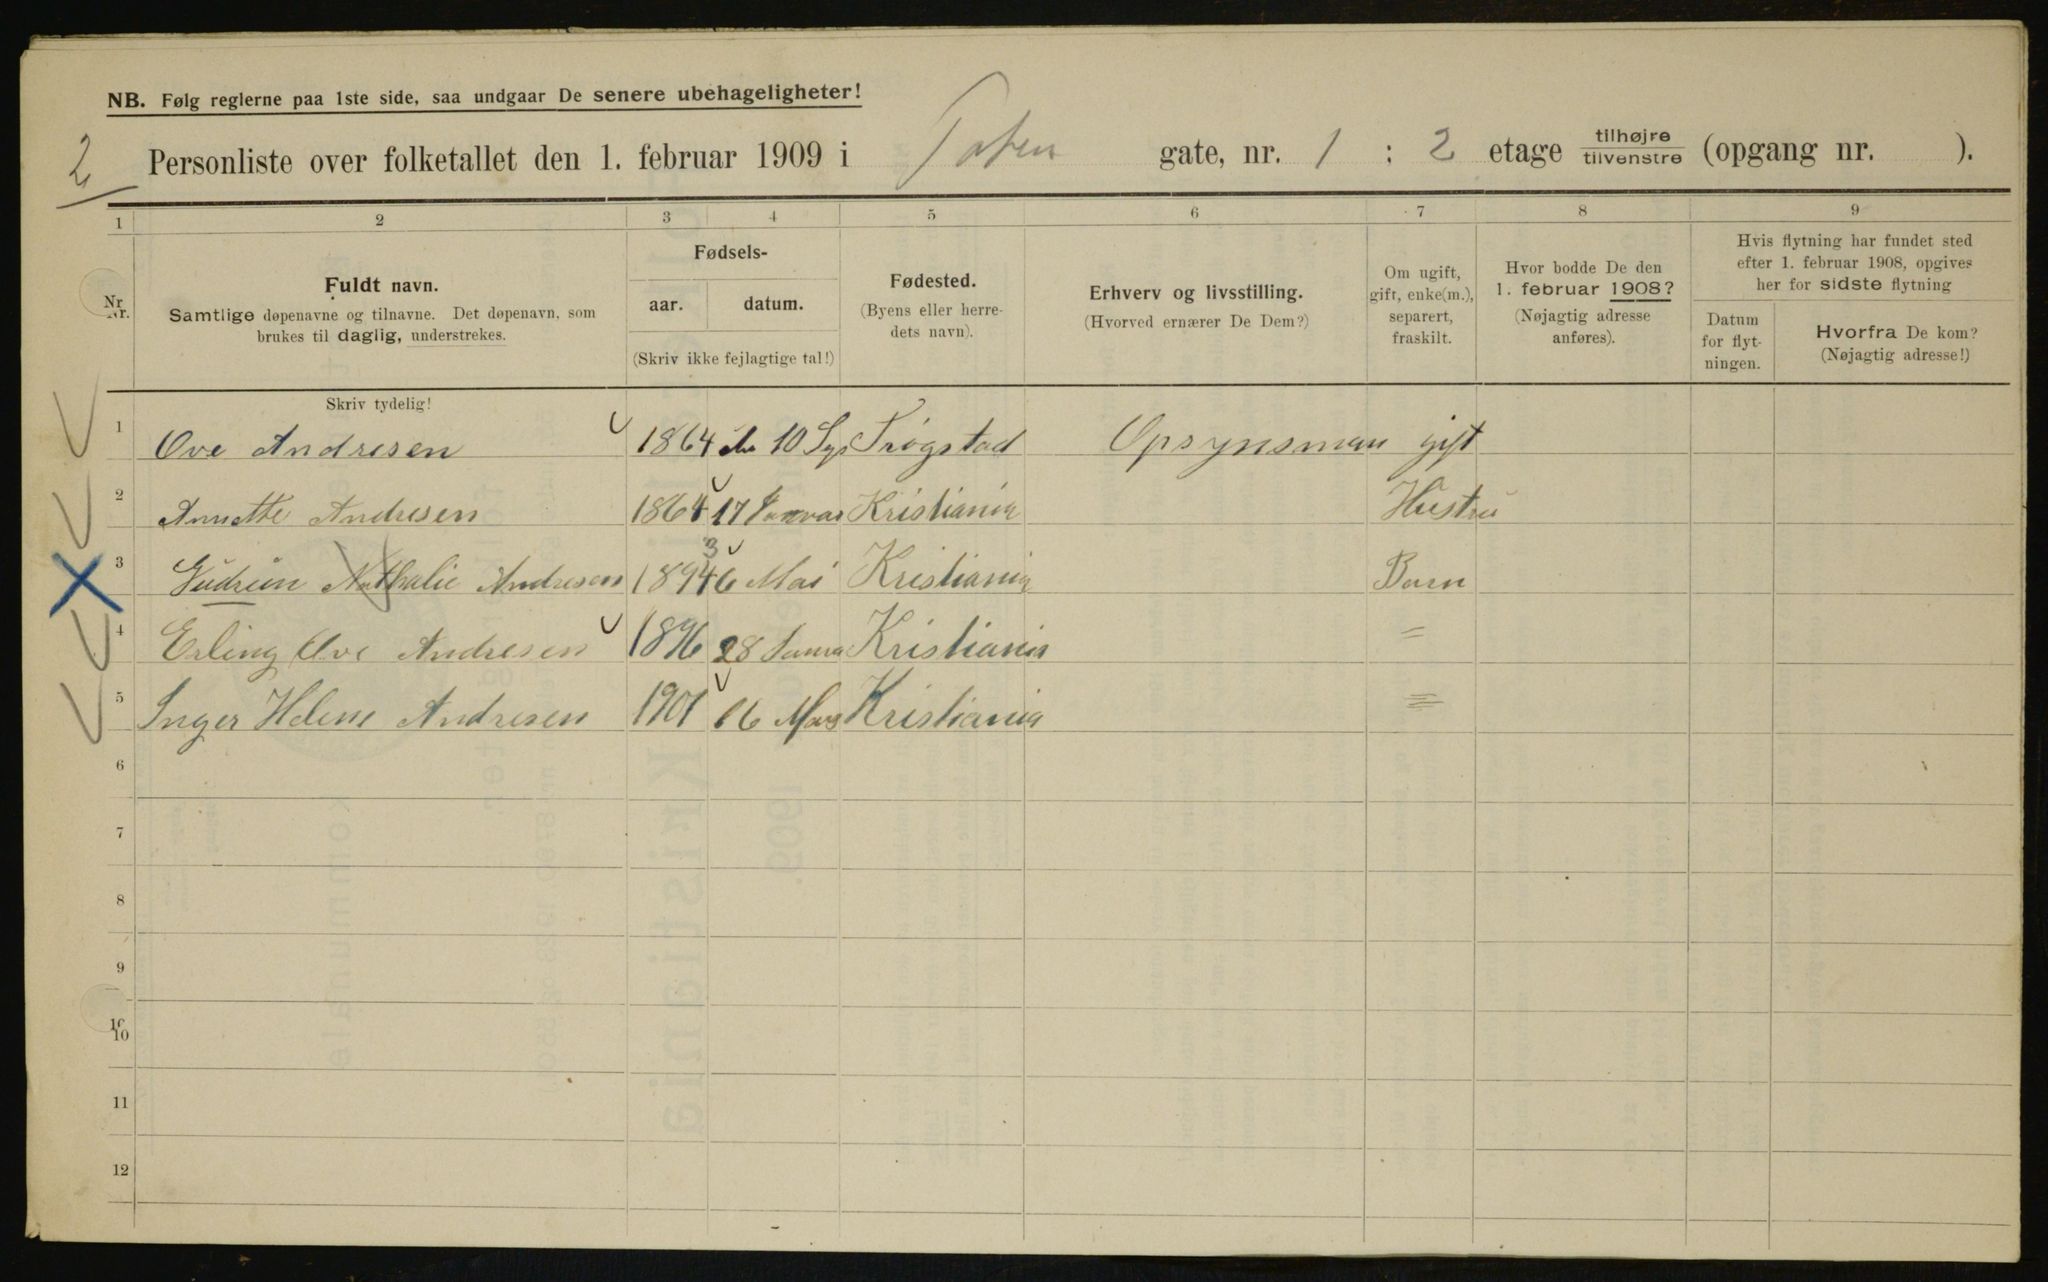 NB. Følg reglerne paa 1ste side, saa undgaar De senere ubehageligheter!
2
Personliste over folketallet den 1. februar 1909 i Toten gate, nr. 1 : 2 etage tilhøjre tilvenstre (opgang nr. ).
1 2 3 4 5 6 7 8 9
Nr. Nr.
Fuldt navn.
Samtlige døpenavne og tilnavne. Det døpenavn, som
brukes til daglig, understrekes.
Fødsels-
aar. datum.
(Skriv ikke fejlagtige tal!)
Fødested.
(Byens eller herre-
dets navn).
Erhverv og livsstilling.
(Hvorved ernærer De Dem?)
Om ugift,
gift, enke(m.),
separert,
fraskilt.
Hvor bodde De den
1. februar 1908?
(Nøjagtig adresse
anføres).
Hvis flytning har fundet sted
efter 1. februar 1908, opgives
her for sidste flytning
Datum
for flyt-
ningen.
Hvorfra De kom?
(Nøjagtig adresse!)
Skriv tydelig!
1 Ove Andresen 1864 10 Trøgstad Opsynsman gift
2 Annette Andresen 1864 17 Januar Kristiania Hustru
3
3 Gudrun Nathalie Andresen 1894 6 Mai Kristiania Barn
4 Erling Ove Andresen 1896 28 Kristiania =
5 Inger Helene Andresen 1901 16 Mars Kristiania =
6
7
8
9
10
10
11
12